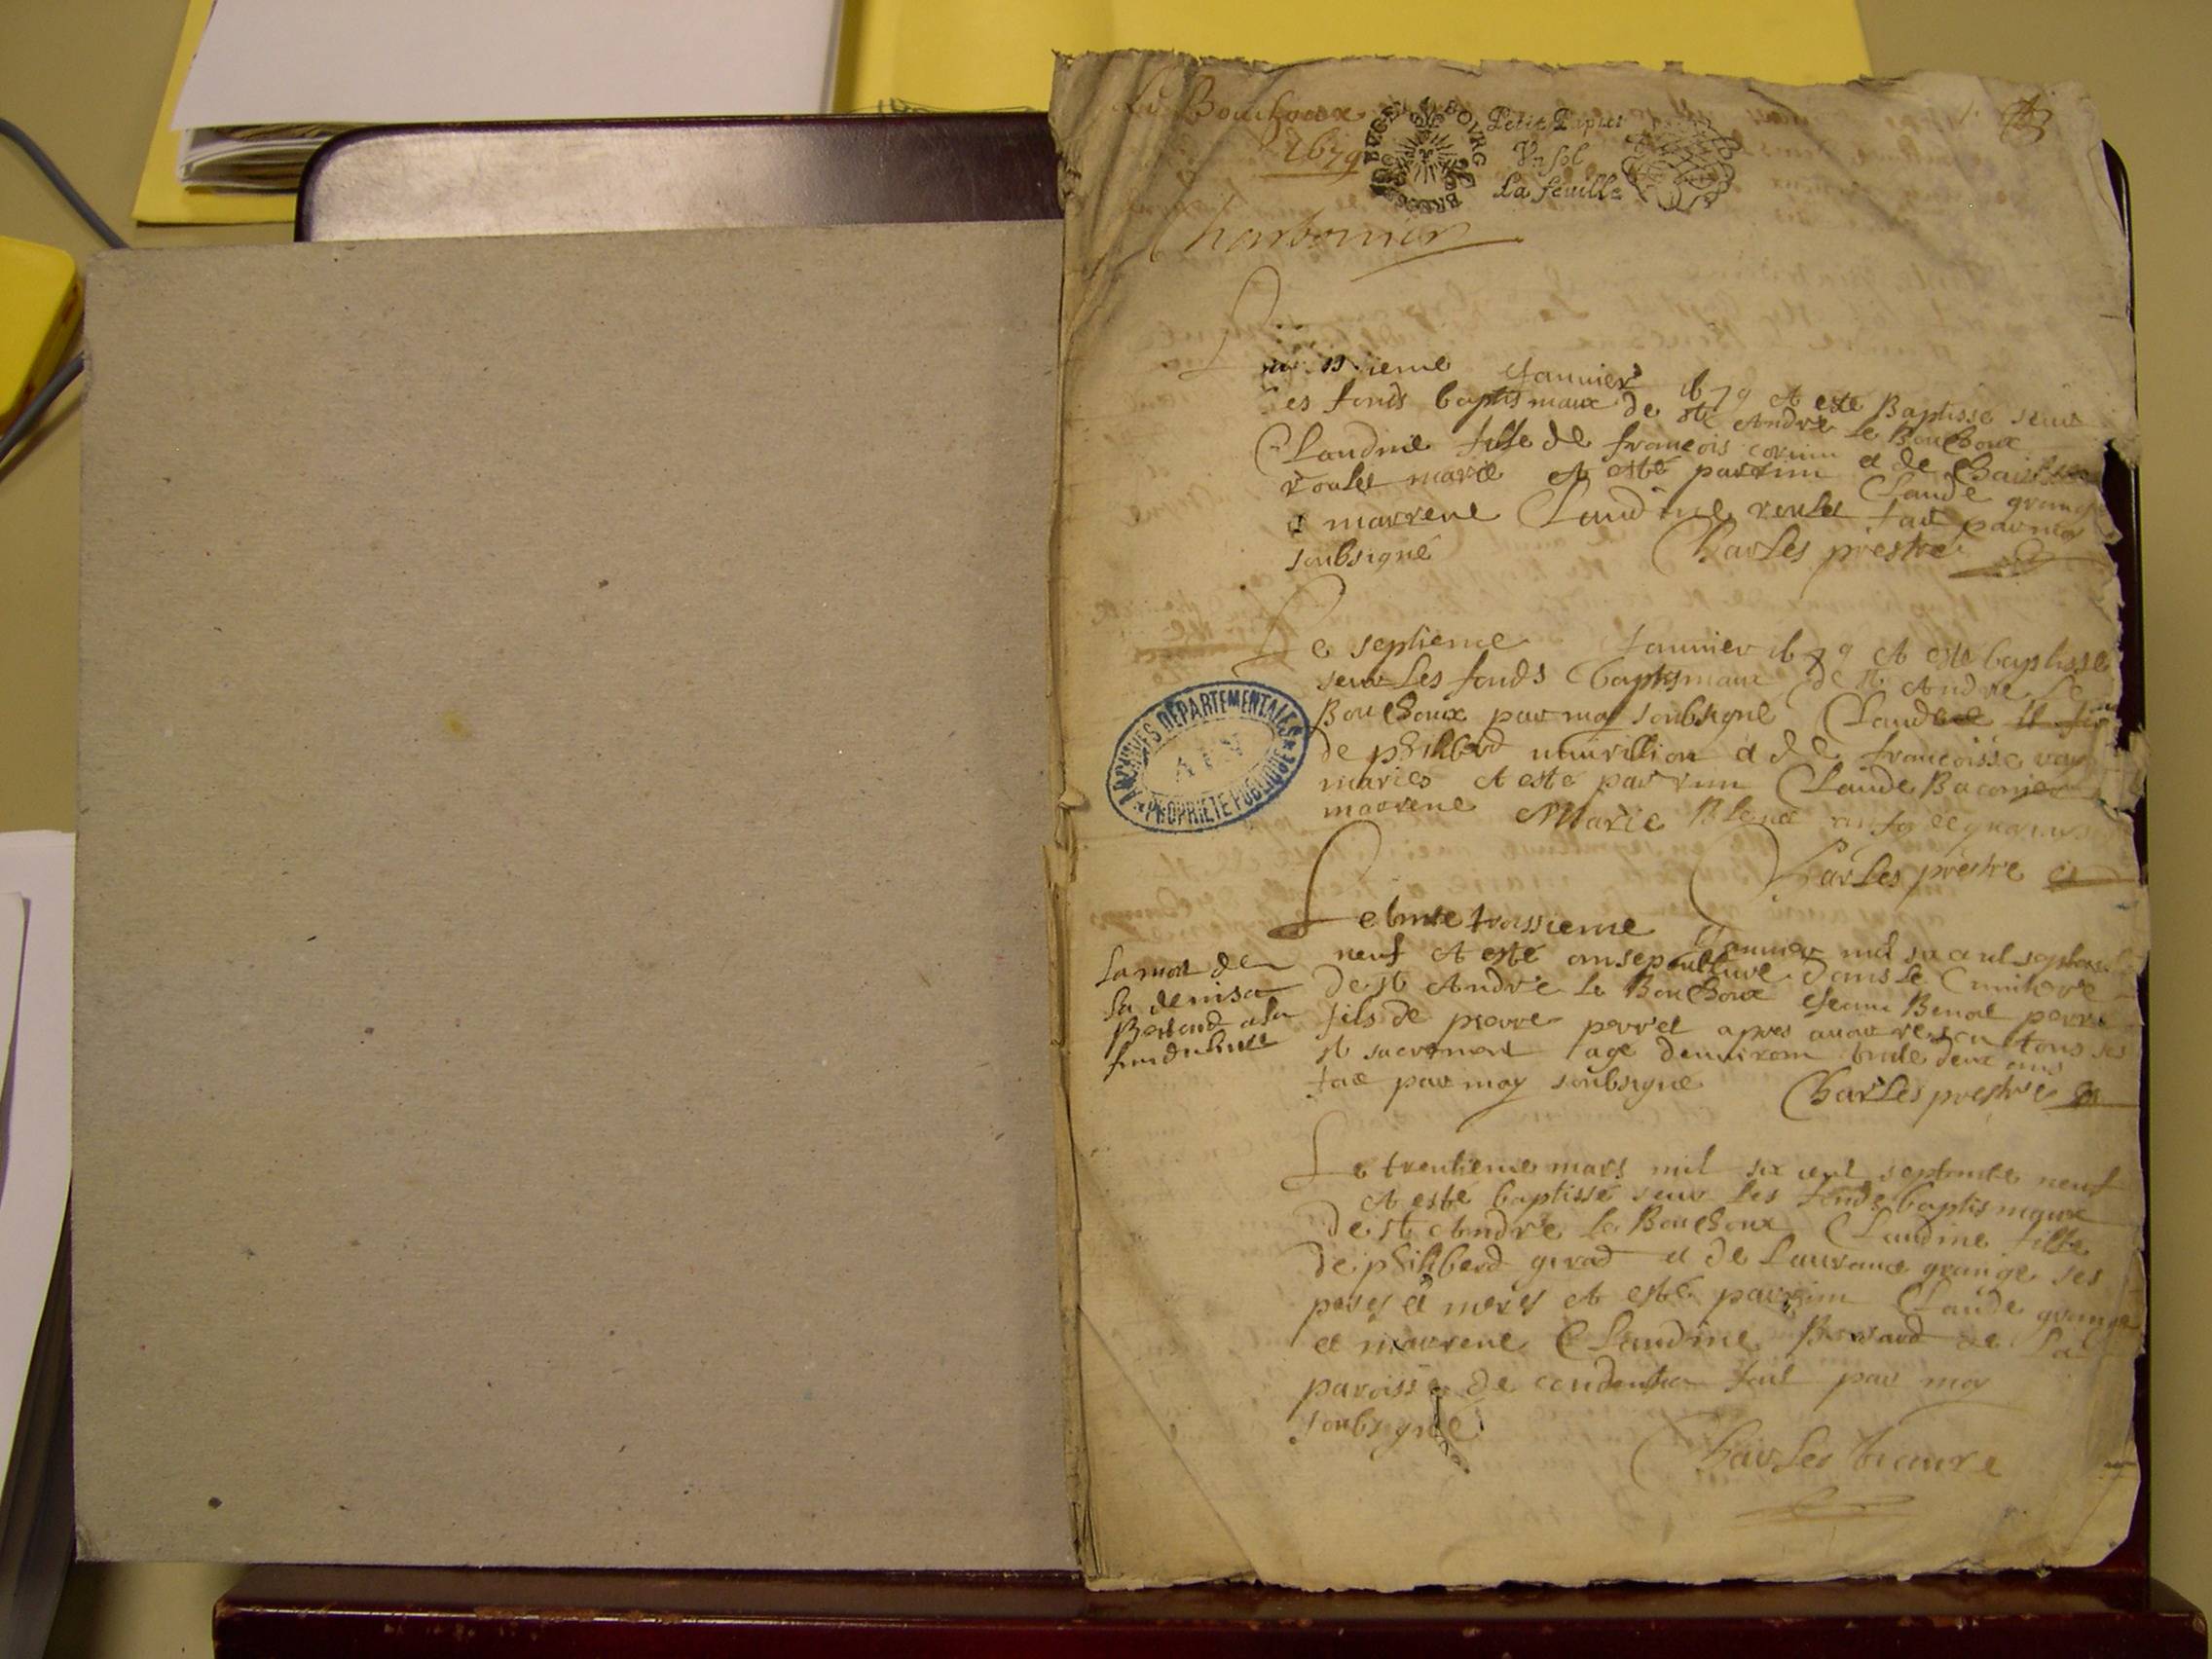 Le Bouchoux
1679
BOURG
Petit Papier
Un sol
La feuille
Charbonnier
ieme Janvier 1679 At este Baptissé seur
les fonds baptismaux de st Andre le Bouchoux
Claudine fille de francois et de
roulet marie At esté parrin Claude grange
et marrene Claudine roulet fait par moy
soubsigné Charles prestre
Le septieme Janvier 1679 At este baptisse
seur Les fonds baptismaux de st Andre Le
Bouchoux par moy soubsigné Claude
de philiberd et de francoisse
maries At esté parrin Claude Baconier
marrene Marie
Charles prestre
Le troissieme Janvier mil six cent septante
neuf At esté ansepulture dans le
de st Andre le Bouchoux Jean Benoit perret
fils de pierre perret apres avoir resçu tous ses
st sacrement age deuiron deux ans
fait par moy soubsigné Charles prestre
La mort de
la denisa
a la
fin du livre
Le trentieme mars mil six cent septante neuf
At esté baptissé seur les fonds baptismaux
de st Andre le Bouchoux Claudine fille
de philiberd girad et de Laurance grange ses
peres et meres At esté parrin Claude grange
et marrene Claudine de La
paroisse de fait par moy
soubsigné
Charles
ARCHIVES DEPARTEMENTALES
AIN
PROPRIETE PUBLIQUE